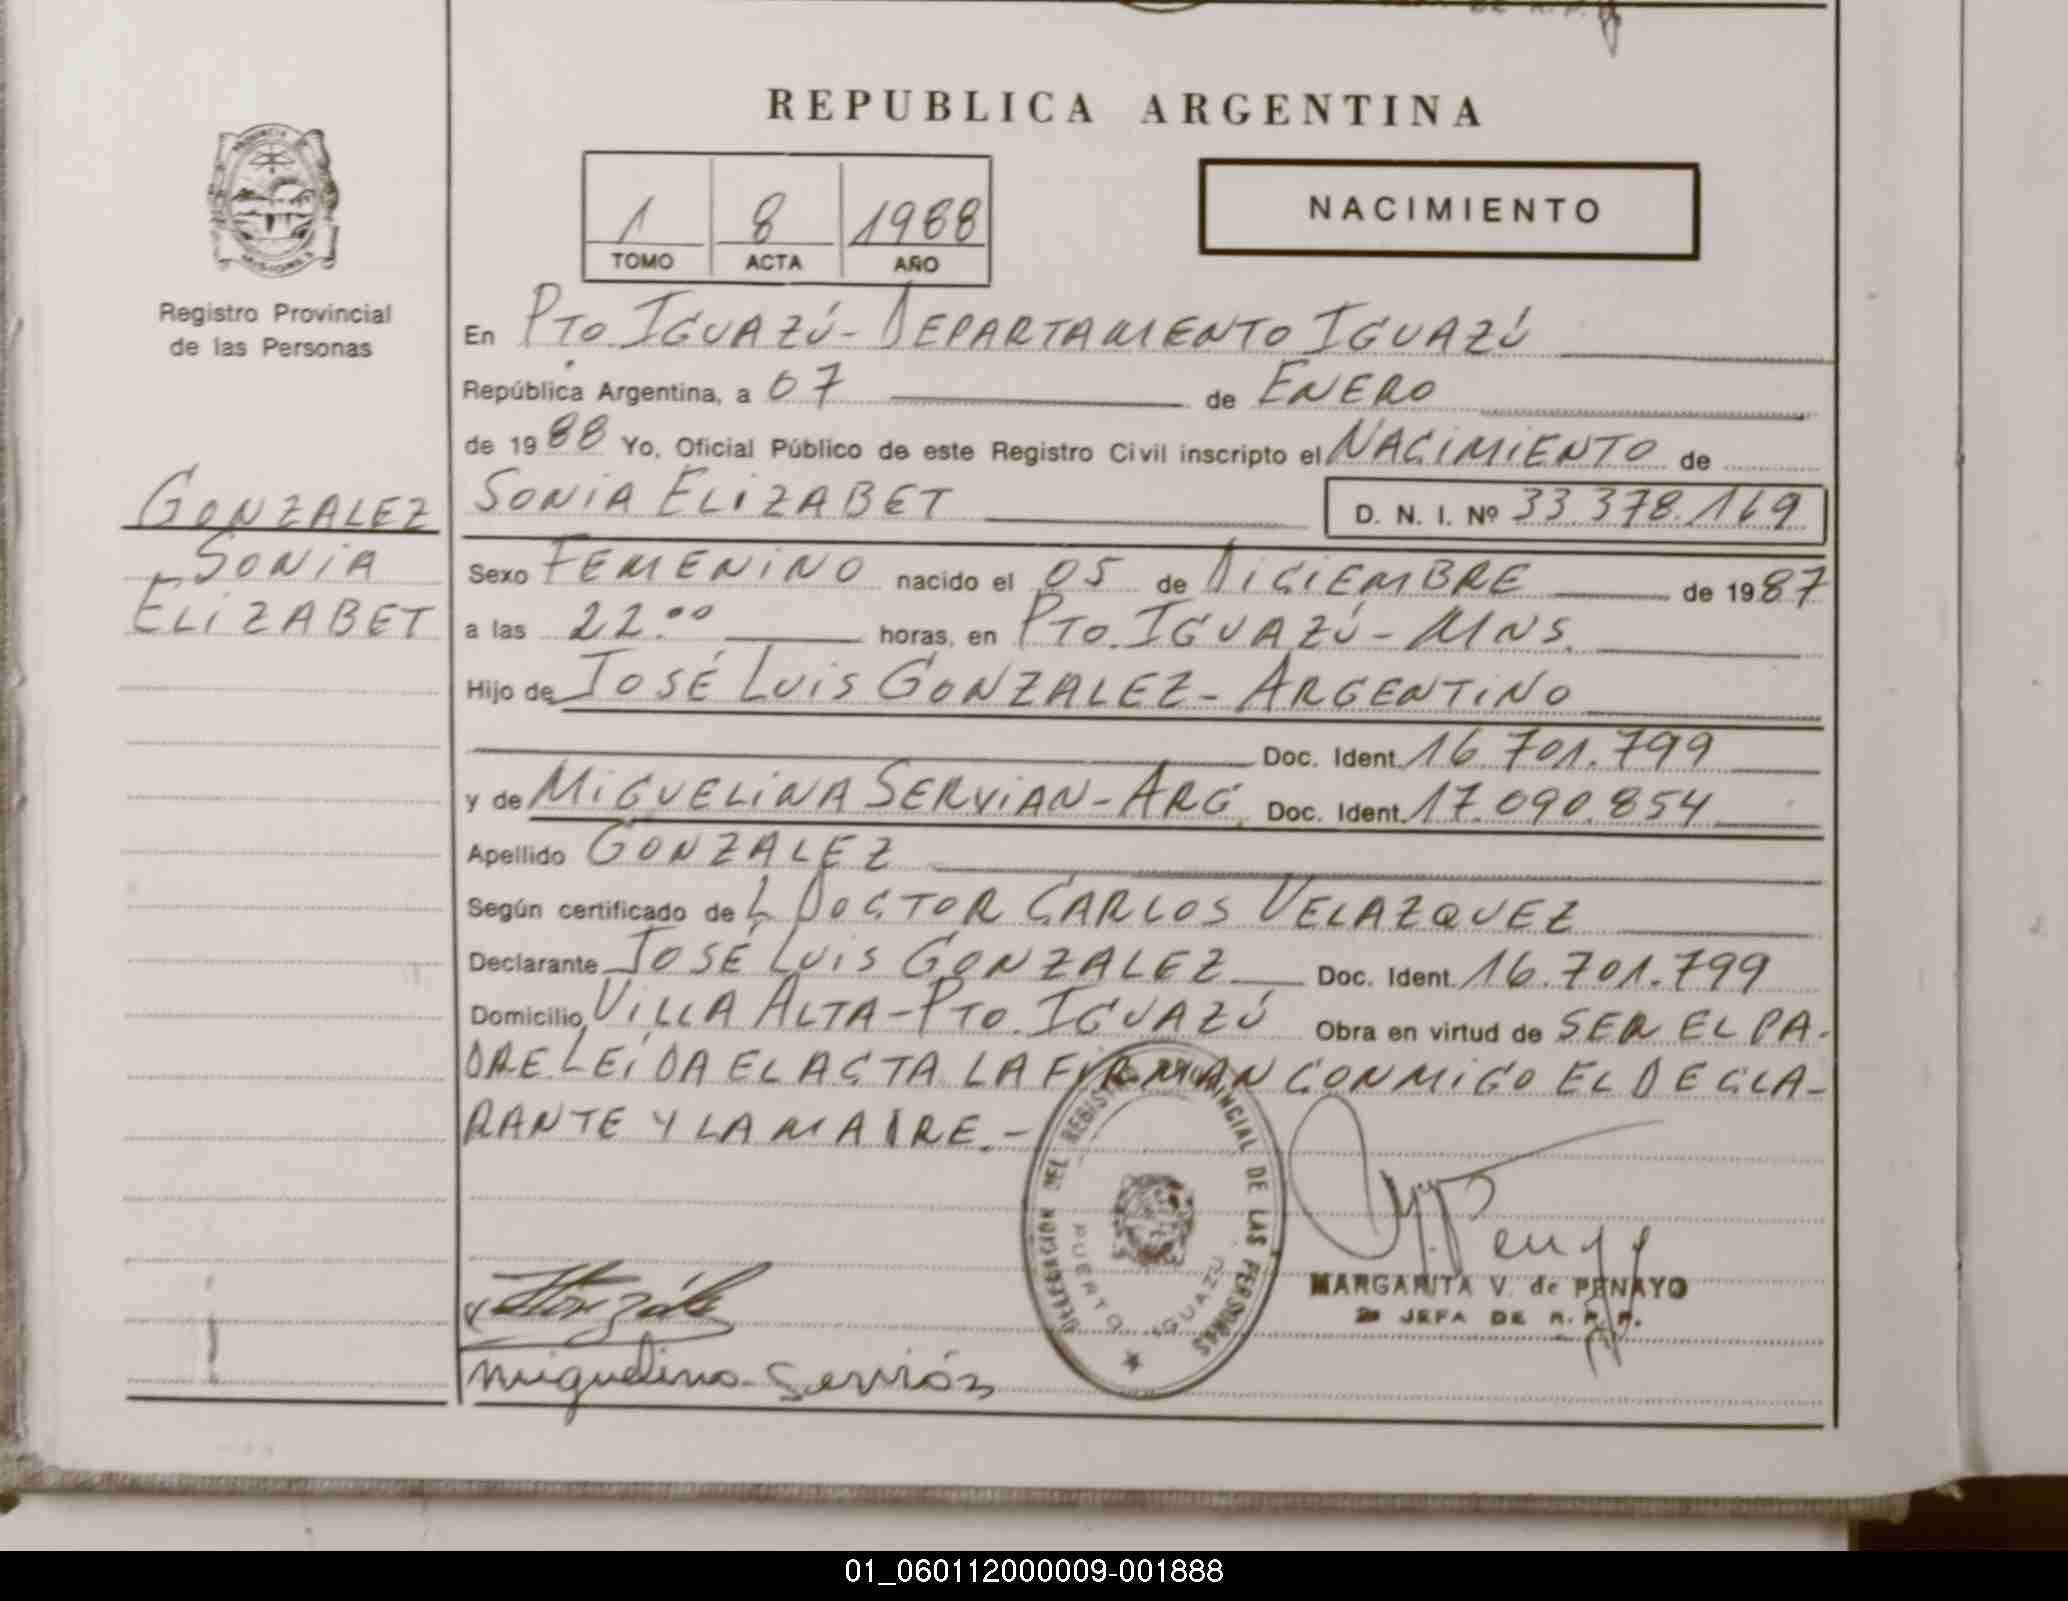 REPUBLICA ARGENTINA
PROVINCIA
MISIONES
Registro Provincial
de las Personas
1 8 1988
TOMO ACTA AÑO
NACIMIENTO
En PTO. IGUAZÚ - DEPARTAMENTO IGUAZÚ
República Argentina, a 07 de ENERO
de 1988 Yo, Oficial Público de este Registro Civil inscripto el NACIMIENTO de
GONZALEZ
SONIA
ELIZABET
SONIA ELIZABET D. N. I. Nº 33.378.169
Sexo FEMENINO nacido el 05 de DICIEMBRE de 1987
a las 22.00 horas, en PTO. IGUAZÚ - MNS.
Hijo de JOSÉ LUIS GONZALEZ - ARGENTINO
Doc. Ident. 16.701.799
y de MIGUELINA SERVIAN - ARG. Doc. Ident. 17.090.854
Apellido GONZALEZ
Según certificado de L DOCTOR CARLOS VELAZQUEZ
Declarante JOSÉ LUIS GONZALEZ Doc. Ident. 16.701.799
Domicilio VILLA ALTA - PTO. IGUAZÚ Obra en virtud de SER EL PA-
DRE LEÍDA EL ACTA LA FIRMAN CONMIGO EL DECLA-
RANTE Y LA MADRE.-
DELEGACION DEL REGISTRO PROVINCIAL DE LAS PERSONAS
PUERTO IGUAZU
MARGARITA V. de PENAYO
JEFA DE R. P. P.
González
Miguelina Servián
01_060112000009-001888